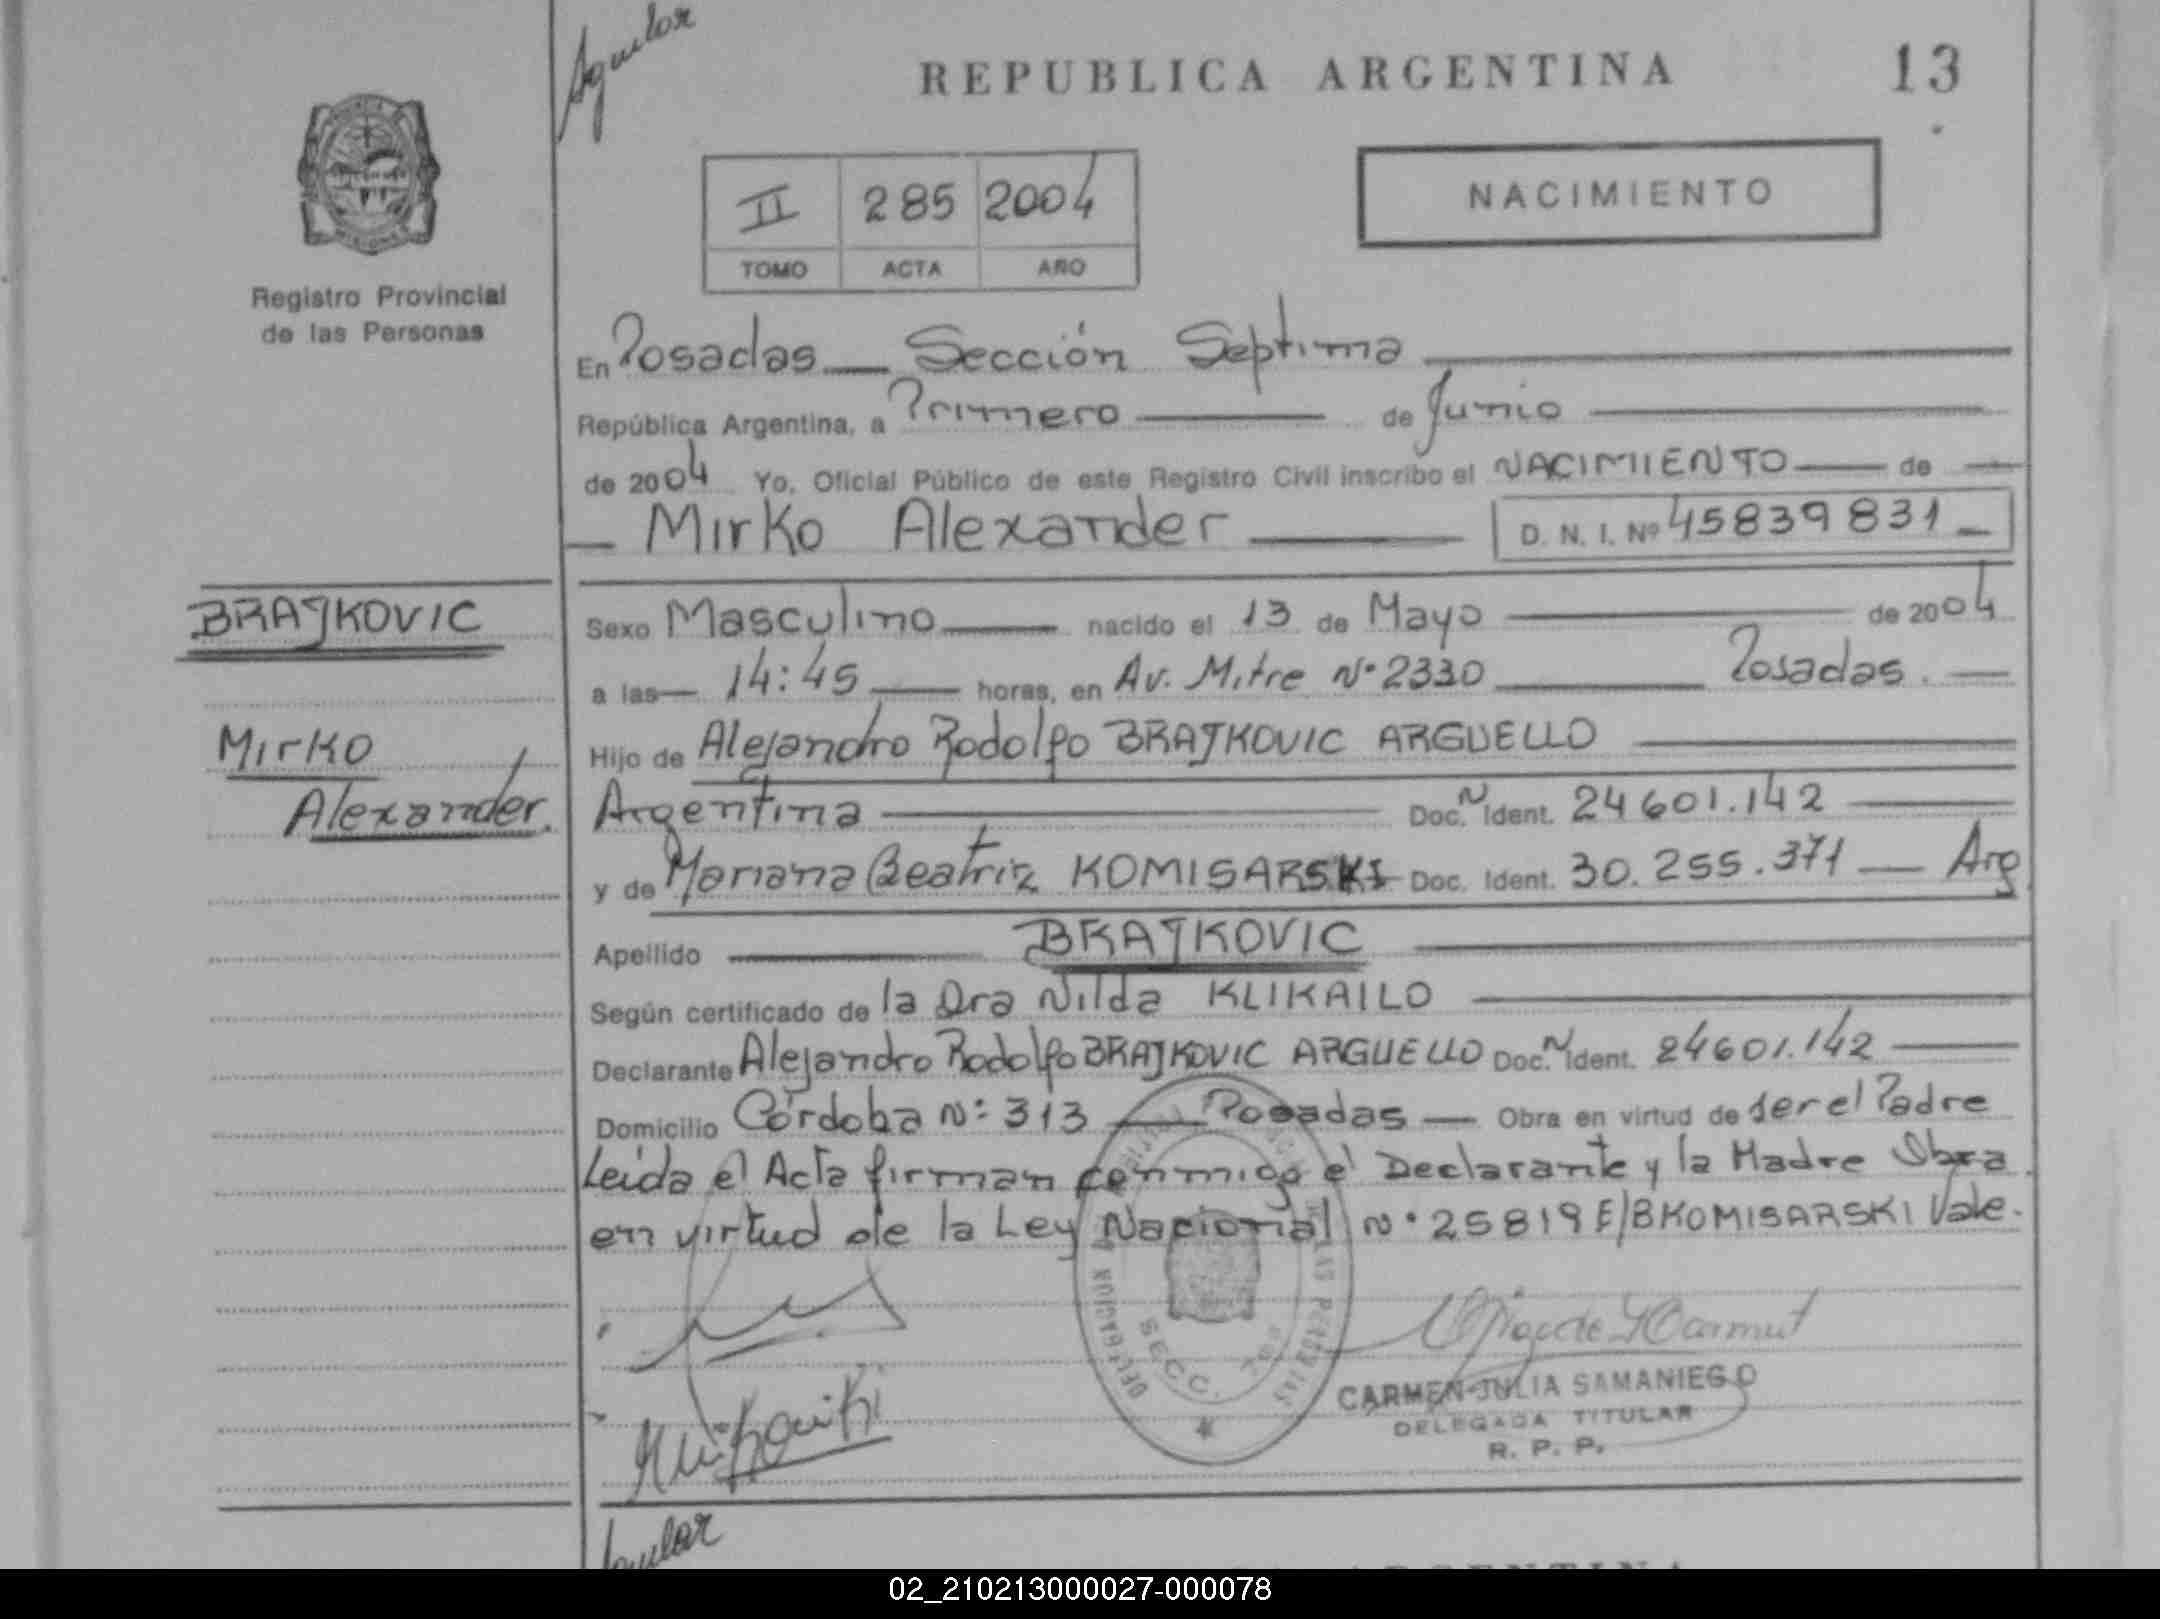 Aguilar
REPUBLICA ARGENTINA
13
II 285 2004
TOMO ACTA AÑO
NACIMIENTO
Registro Provincial
de las Personas
En Posadas — Sección Septima
República Argentina, a Primero — de Junio
de 2004 Yo, Oficial Público de este Registro Civil inscribo el NACIMIENTO — de —
— Mirko Alexander — D. N. I. Nº 45839831 —
BRAJKOVIC
Mirko
Alexander.
Sexo Masculino — nacido el 13 de Mayo — de 2004
a las — 14:45 — horas, en Av. Mitre Nº 2330 — Posadas. —
Hijo de Alejandro Rodolfo BRAJKOVIC ARGUELLO —
Argentina — Doc. N Ident. 24601.142 —
y de Mariana Beatriz KOMISARSKI Doc. Ident. 30.255.371 — Arg
Apellido — BRAJKOVIC —
Según certificado de la Dra Nilda KLIKAILO —
Declarante Alejandro Rodolfo BRAJKOVIC ARGUELLO Doc. N Ident. 24601.142 —
Domicilio Córdoba Nº 313 — Posadas — Obra en virtud de ser el Padre
Leida el Acta firman conmigo el Declarante y la Madre Obra
en virtud de la Ley Nacional nº 25819 E/B KOMISARSKI Vale.
SECC. 7
CARMEN JULIA SAMANIEGO
DELEGADA TITULAR
R. P. P.
Aguilar
02_210213000027-000078